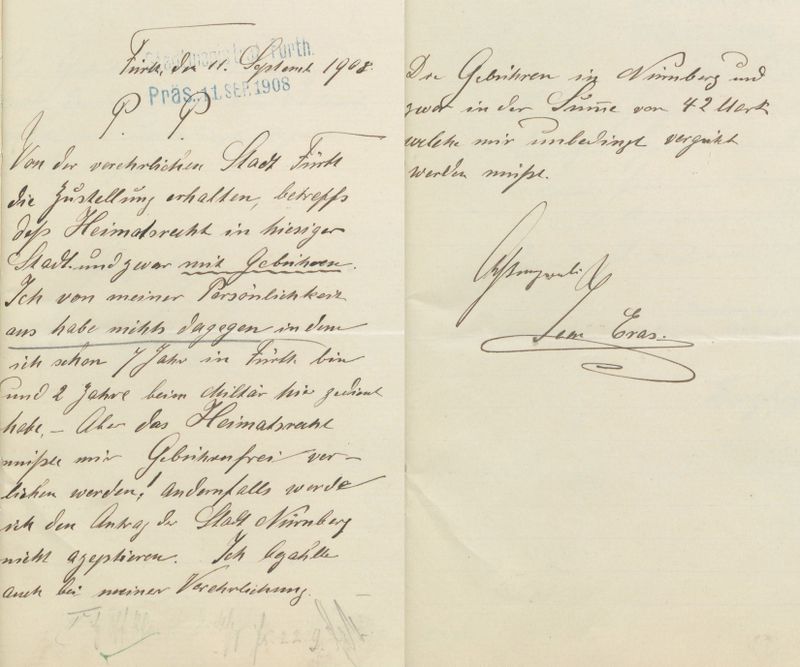 Fürth, den 11. Septemb 1908.
Stadtmagistrat Fürth.
Präs. 11. SEP. 1908
P. P.
Von der verehrlichen Stadt Fürth
die Zustellung erhalten, betreffs
deß Heimatsrecht in hiesiger
Stadt und zwar mit Gebühren.
Ich von meiner Persönlichkeit
aus habe nichts dagegen in dem
ich schon 7 Jahr in Fürth bin
und 2 Jahre beim Militär hie gedient
habe. – Aber das Heimatsrecht
müßte mir Gebührenfrei ver-
liehen werden! andernfalls werde
ich den Antrag der Stadt Nürnberg
nicht azeptieren. Ich bezahlte
auch bei meiner Verehelichung
Die Gebühren in Nürnberg und
zwar in der Sum̄e von 42 Mark
welche mir unbedingt vergütet
werden müßte.
Eras.